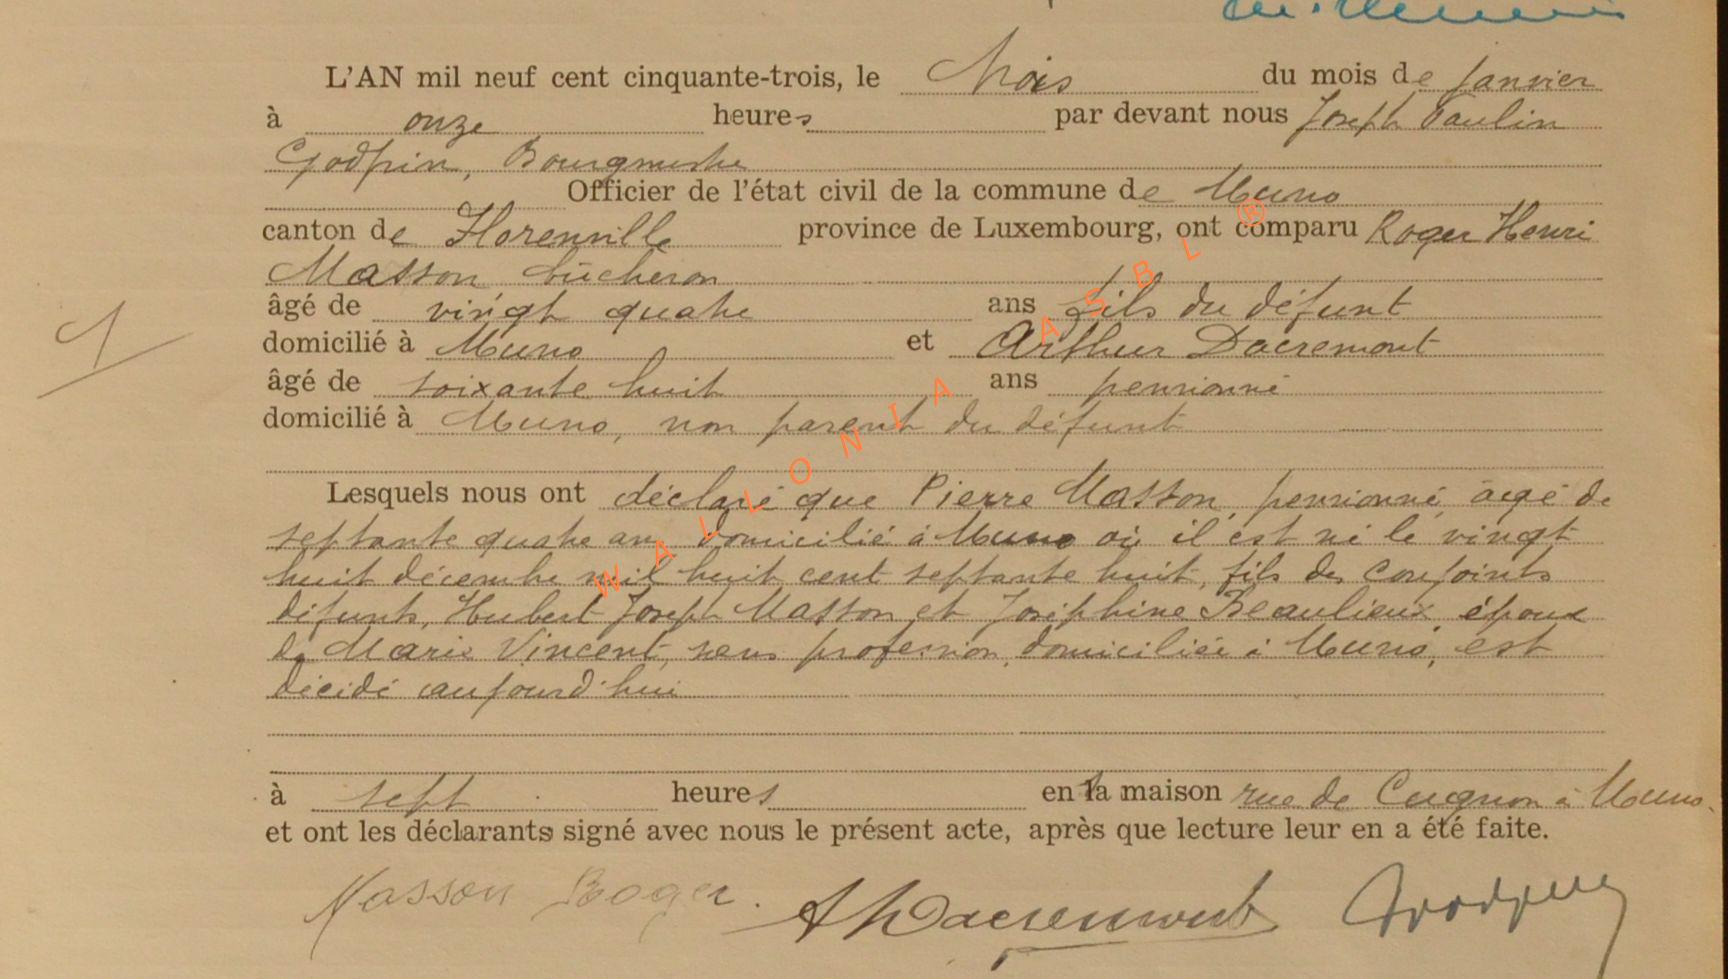 L'AN mil neuf cent cinquante-trois, le trois du mois de janvier
à onze heures par devant nous Joseph Paulin
Godfrin, Bourgmestre
Officier de l'état civil de la commune de Muno
canton de Florenville province de Luxembourg, ont comparu Roger Henri
Masson bûcheron
âgé de vingt quatre ans fils du défunt
domicilié à Muno et Arthur Dacremont
âgé de soixante huit ans pensionné
domicilié à Muno, non parent du défunt
1
Lesquels nous ont déclaré que Pierre Masson, pensionné, âgé de
septante quatre ans, domicilié à Muno où il est né le vingt
huit décembre mil huit cent septante huit, fils des conjoints
défunts, Hubert Joseph Masson et Joséphine Beaulieux, époux
de Marie Vincent, sans profession, domiciliée à Muno, est
décédé aujourd'hui
à sept heures en la maison rue de Cugnon à Muno.
et ont les déclarants signé avec nous le présent acte, après que lecture leur en a été faite.
Masson Roger. A Dacremont Godfrin
WALLONIA ASBL ®